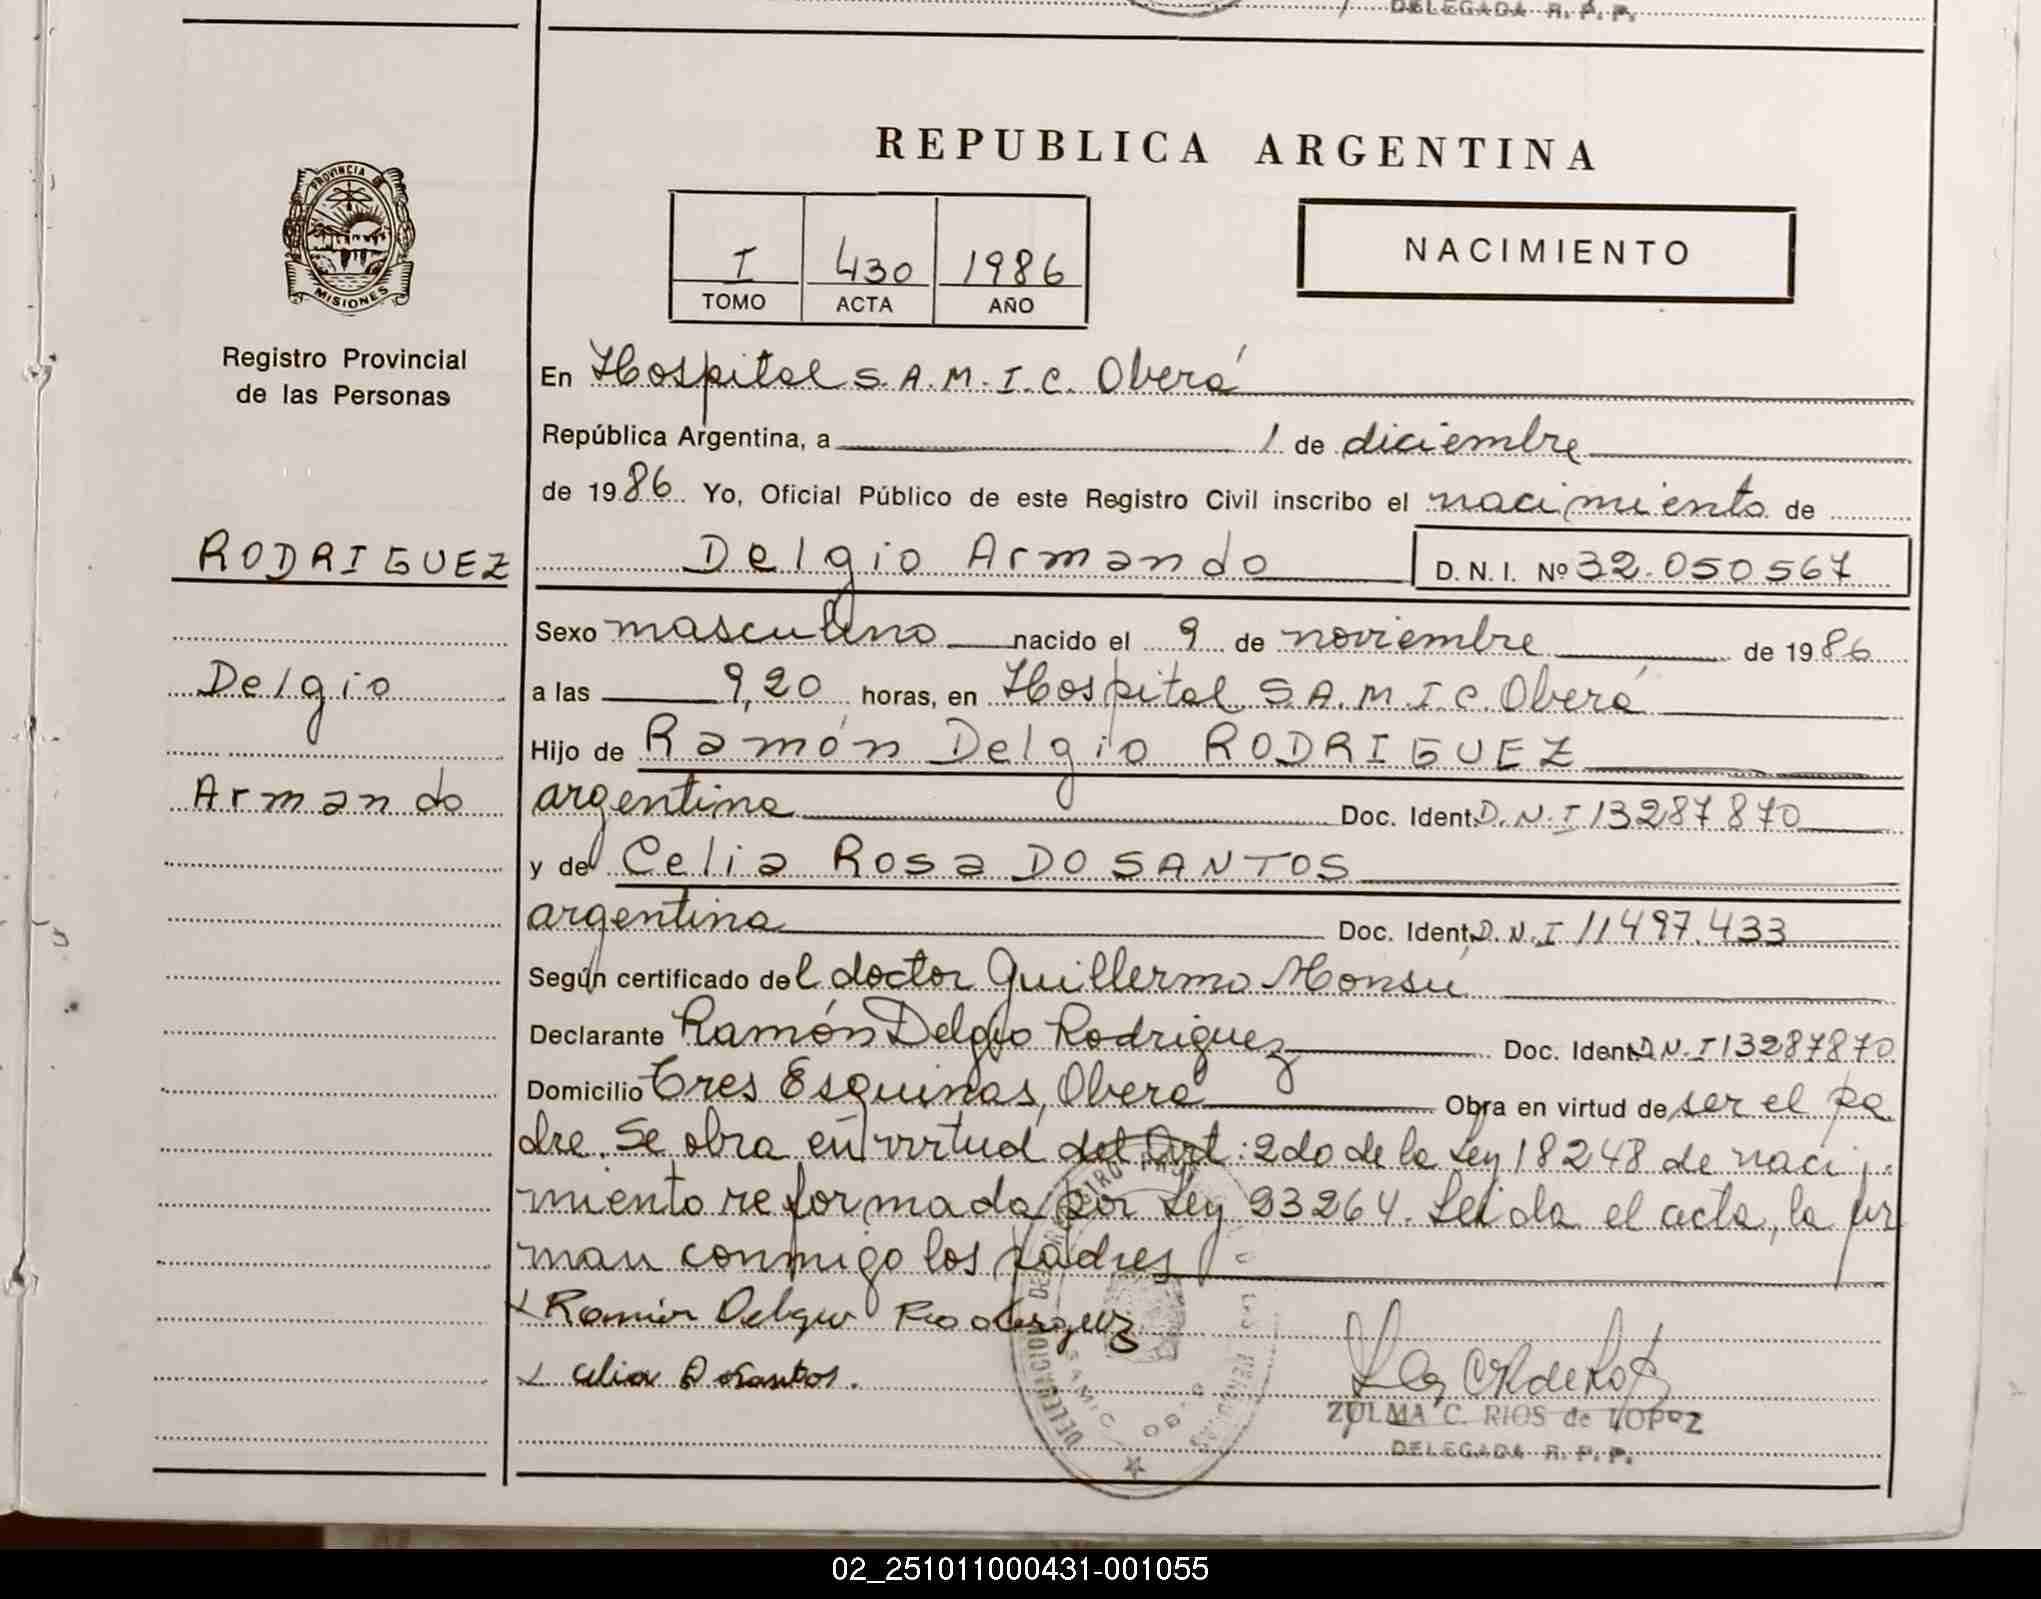 DELEGADA R. P. P.
REPUBLICA ARGENTINA
PROVINCIA DE
MISIONES
Registro Provincial
de las Personas
I 430 1986
TOMO ACTA AÑO
NACIMIENTO
En Hospital S.A.M.I.C. Oberá
República Argentina, a 1 de diciembre
de 1986 Yo, Oficial Público de este Registro Civil inscribo el nacimiento de
RODRIGUEZ
Delgio Armando D.N.I. Nº 32.050567
Sexo masculino nacido el 9 de noviembre de 1986
Delgio
a las 9,20 horas, en Hospital S.A.M.I.C. Oberá
Hijo de Ramón Delgio RODRIGUEZ
Armando
argentina Doc. Ident. D.N.I 13287870
y de Celia Rosa DO SANTOS
argentina Doc. Ident. D.N.I 11497.433
Según certificado del doctor Guillermo Monsú
Declarante Ramón Delgio Rodriguez Doc. Ident D.N.I 13287870
Domicilio Tres Esquinas, Oberá Obra en virtud de ser el pa
dre. Se obra en virtud del Art: 2do de la Ley 18248 de naci
miento reformada por Ley 23264. Leída el acta, la fir
man conmigo los padres
x Ramón Delgio Rodriguez
x Celia Dosantos.
ZULMA C. RIOS de LOPEZ
DELEGADA R. P. P.
02_251011000431-001055